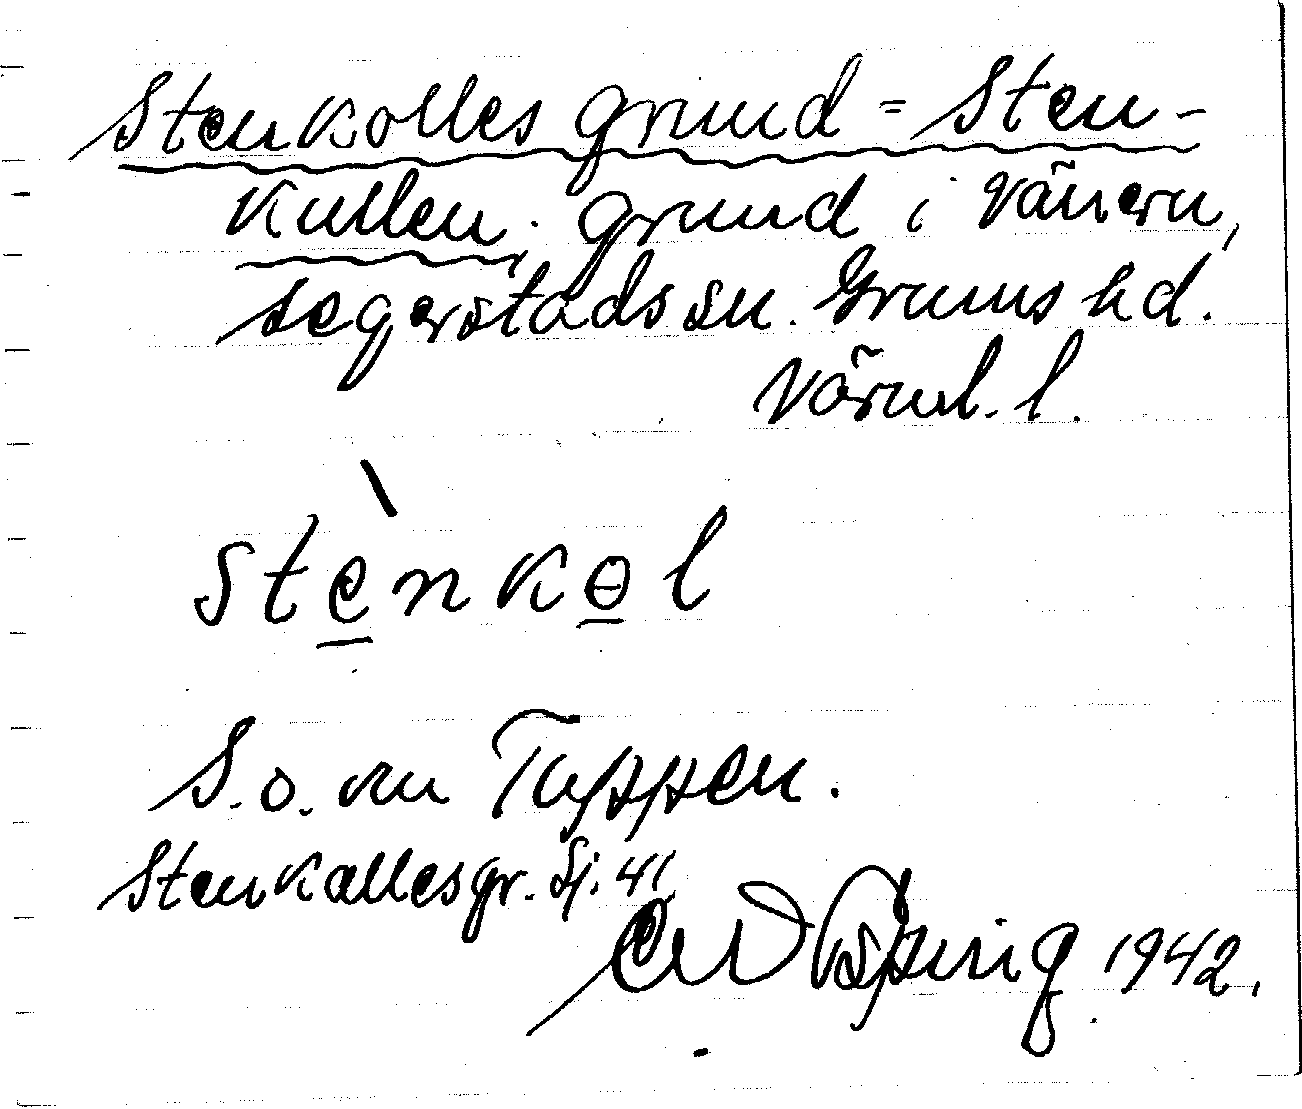 Stenkolles grund = Sten-
kullen. grund i Vänern,
Segerstads sn. Grums hd.
Värml. l.
stènkɵl
S. o. om Tuppen.
Stenkallesgr. Sj. 41
1942.